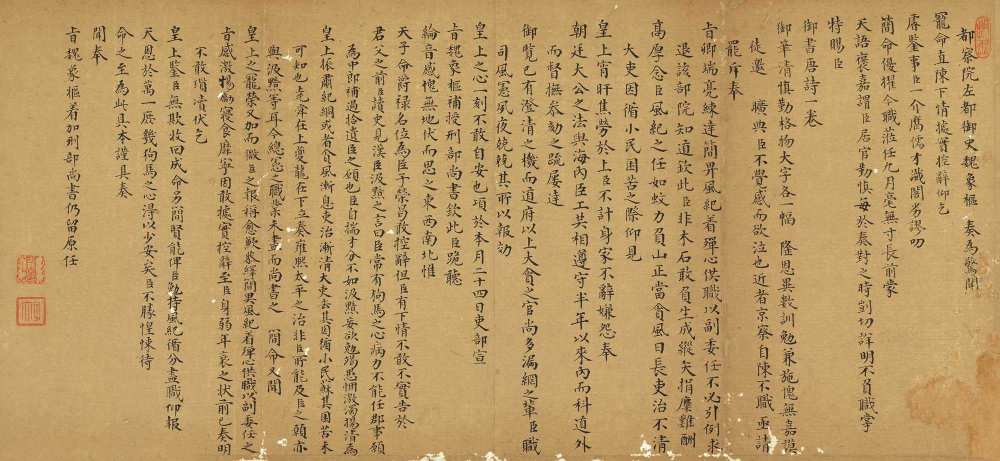 都察院左都御史魏象樞 奏為驚聞
寵命直陳下情據實控辭仰乞
睿鑒事臣一介庸儒才識闇劣謬叨
簡命優擢今職蒞任九月毫無寸長前蒙
天語褒嘉謂臣居官勤慎每於奏對之時剴切詳明不負職掌
特賜臣
御書唐詩一卷
御筆清慎勤格物大字各一幅 隆恩異數訓勉兼施愧無嘉謨
徒邀 曠典臣不覺感而欲泣也近者京察自陳不職亟請
罷斥奉
旨卿端亮練達簡畀風紀着殫心供職以副委任不必引例求
退該部院知道欽此臣非木石敢負生成縱矢捐糜難酬
高厚念臣風紀之任如蚊力負山正當貪風日長吏治不清
大吏因循小民困苦之際仰見
皇上宵旰焦勞於上臣不計身家不辭嫌怨奉
朝廷大公之法與海內臣工共相遵守半年以來內而科道外
而督撫參劾之疏屢達
御覽已有澄清之機而道府以上大貪之官尚多漏網之輩臣職
司風憲夙夜兢兢其所以報効
皇上之心一刻不敢自安也項於本月二十四日吏部宣
旨魏象樞補授刑部尚書欽此臣跪聽
綸音感愧無地伏而思之東西南北惟
天子命爵祿名位為臣子榮昌敢控辭但臣有下情不敢不實告於
君父之前臣讀史見漢臣汲黯之言曰臣常有狗馬之心病力不能任郡事願
為中郎補過拾遺臣之願也臣自揣才分不如汲黯妄欲勉竭愚悃激濁揚清為
皇上振肅紀綱或者貪風漸息吏治漸清大吏去其因循小民蘇其困苦未
可知也堯舜在上夔龍在下立奏雍熙太平之治非臣所能及臣之願亦
與汲黯等耳今總憲之職業未盡而尚書之 簡命又聞
皇上之寵榮又加而微臣之報稱愈歉恭繹簡畀風紀着殫心供職以副委任之
旨感激惕勵寢食靡寧因敢據實控辭至臣身弱年衰之狀前已奏明
不敢瑣瀆伏乞
皇上鑒臣無欺收回成命另簡賢能俾臣勉持風紀循分盡職仰報
天恩於萬一庶幾狗馬之心淂以少安矣臣不勝惶悚待
命之至為此具本謹具奏
聞奉
旨魏象樞着加刑部尚書仍留原任